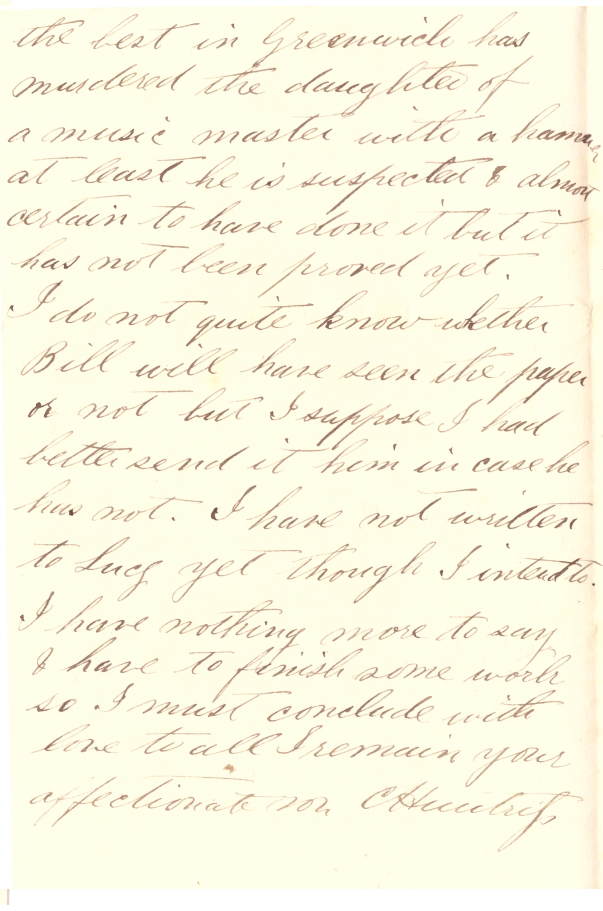 the best in Greenwich has
murdered the daughter of
a music master with a hammer
at least he is suspected & almost
certain to have done it but it
has not been proved yet.
I do not quite know whether
Bill will have seen the paper
or not but I suppose I had
better send it him in case he
has not. I have not written
to Lucy yet though I intend to.
I have nothing more to say
& have to finish some work
so I must conclude with
love to all I remain your
affectionate son